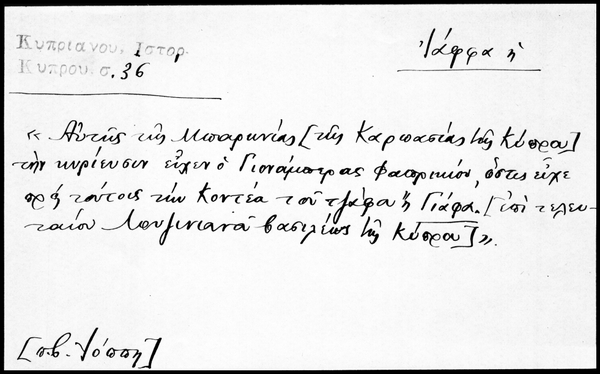 Κυπριανού, Ιστορ.
Κύπρου, σ. 36
Ἰάφφα ἡ
« Αὐτῆς τῆς Μπαρωνίας [τῆς Καρπασίας τῆς Κύπρου]
τὴν κυρίευσιν εἶχεν ὁ Γιονάμπερας Φαπρικίου, ὅστις εἶχε
πρὸς τούτοις τὴν Κοντέα τοῦ τζάφα ἢ Γιάφα. [ἐπὶ τελευ-
ταίου Λουζινιανοῦ βασιλέως τῆς Κύπρου] ».
[π.β. Ἰόππη]